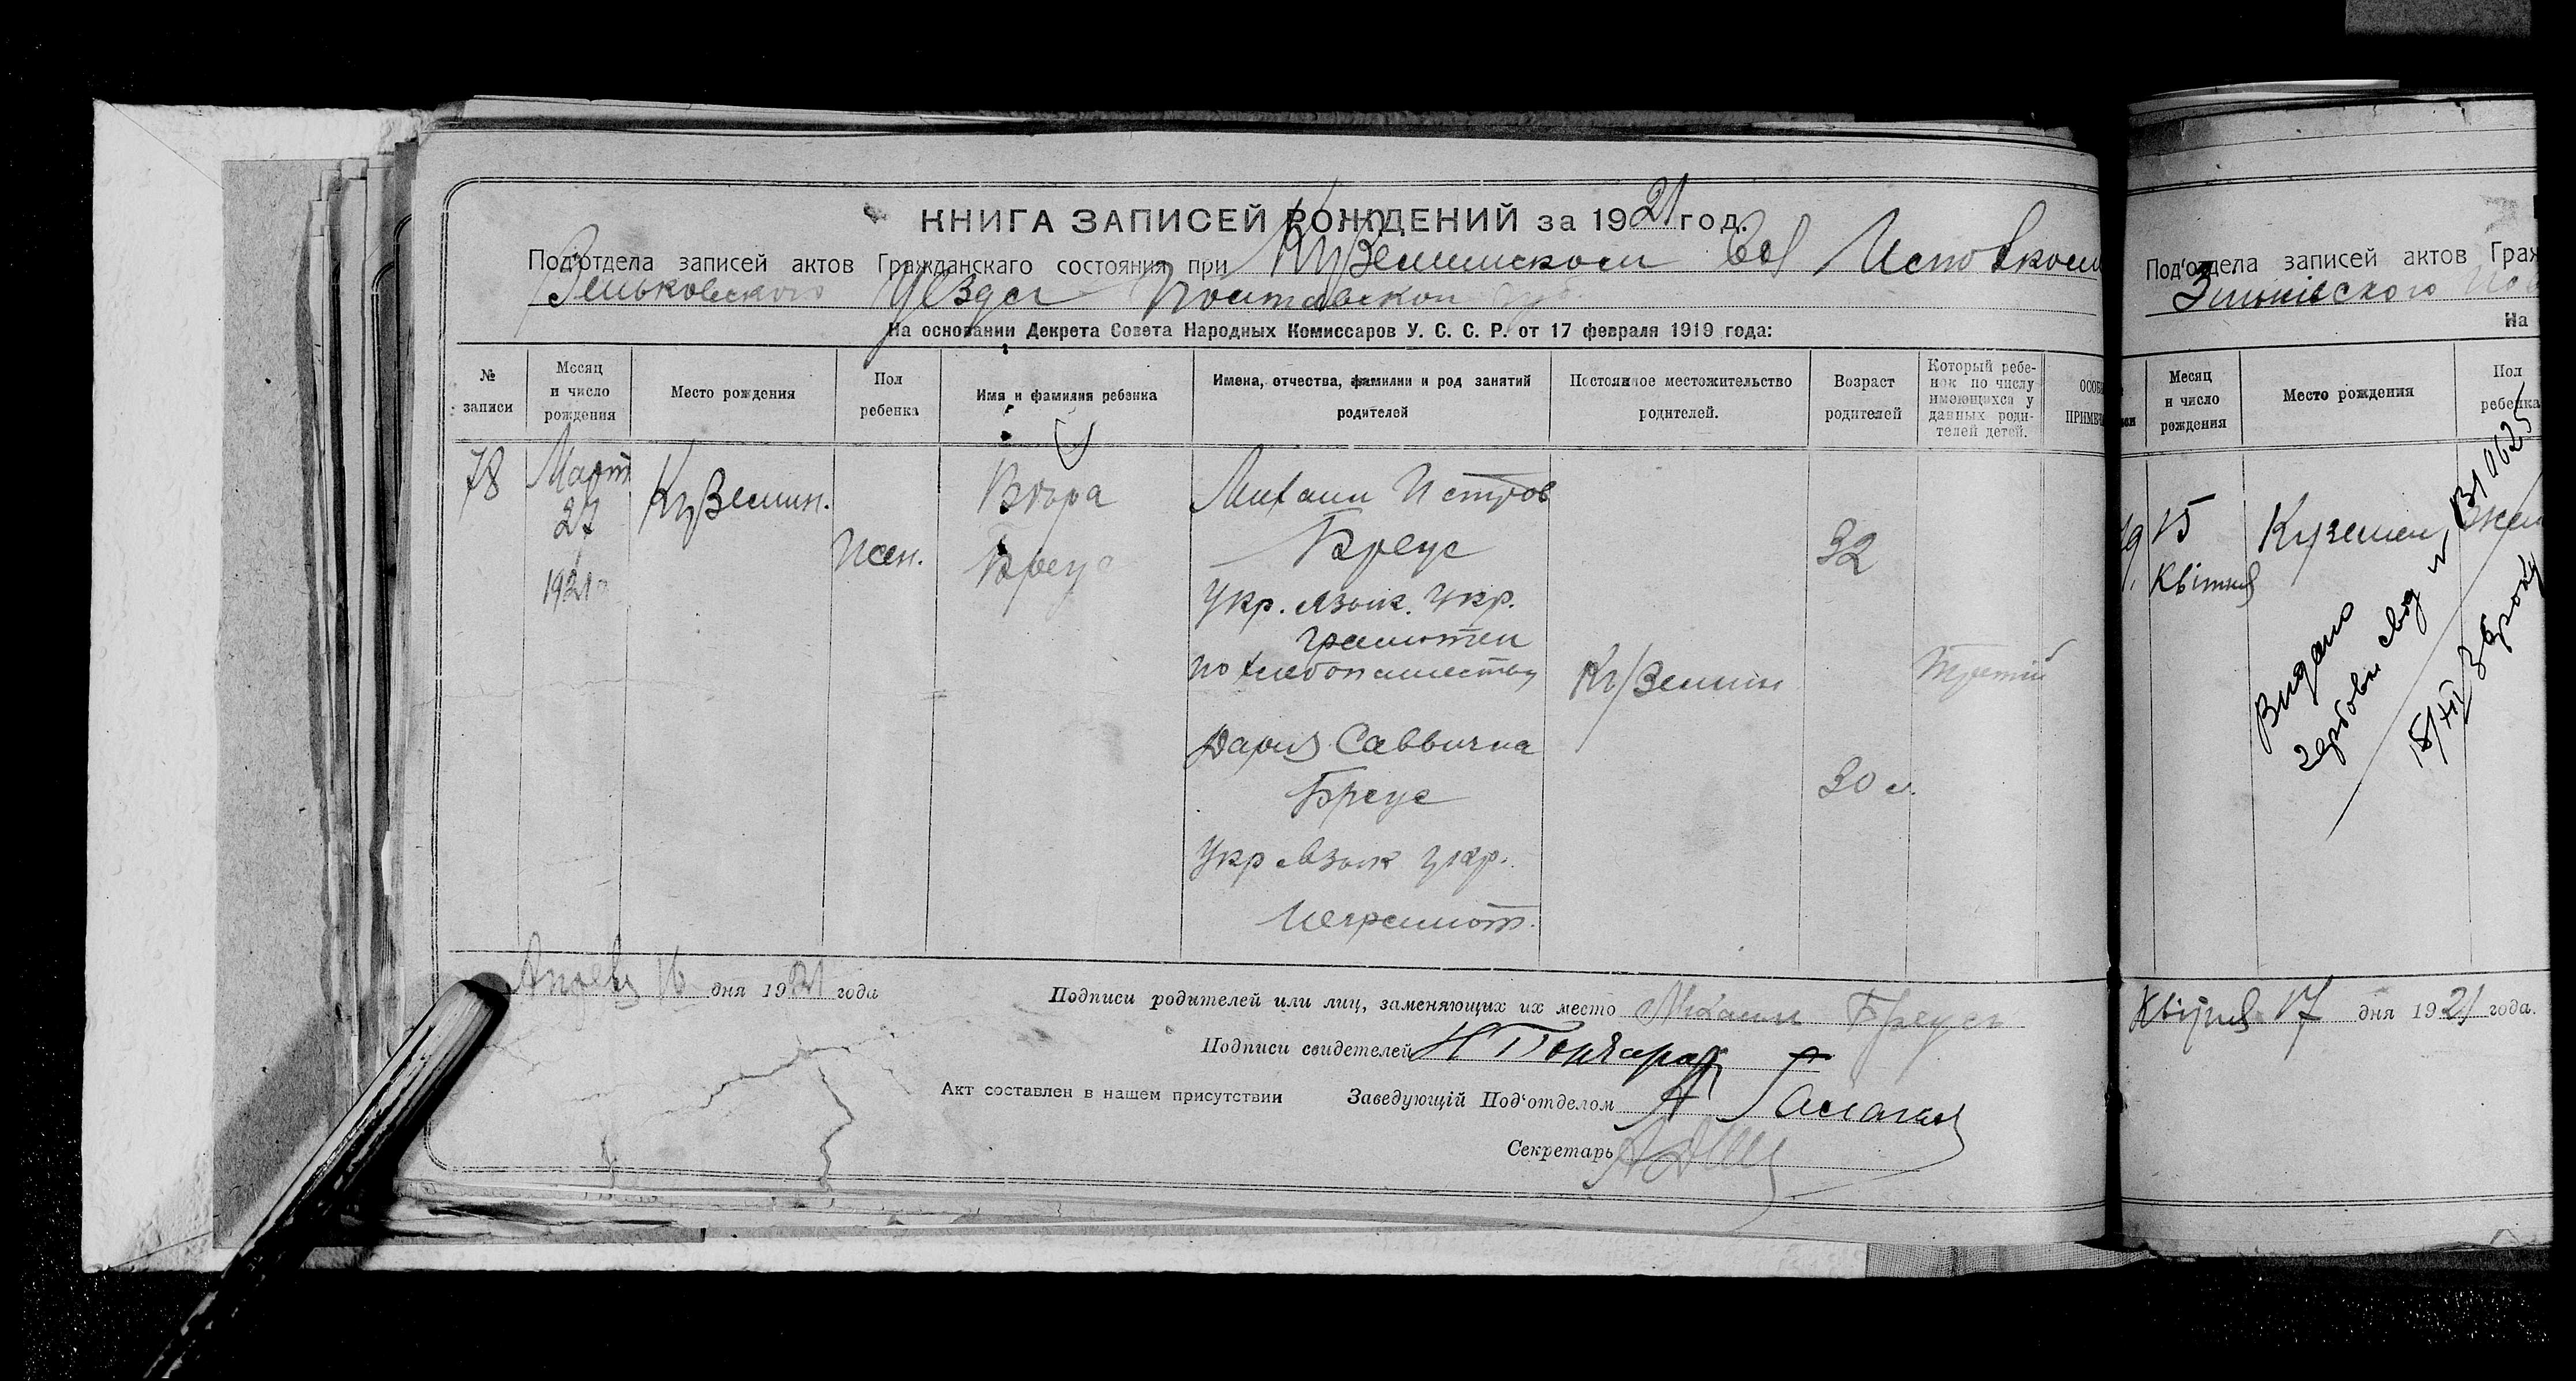 КНИГА ЗАПИСЕЙ РОЖДЕНИЙ за 1921 год.
Под'отдела записей актов Гражданскаго состояния при Куземинском Вол Исполком
Зеньковского Уезда Полтавской губ.
На основании Декрета Совета Народных Комиссаров У. С. С. Р. от 17 февраля 1919 года:
№ записи
Месяц и число рождения
Место рождения
Пол ребенка
Имя и фамилия ребенка
Имена, отчества, фамилии и род занятий родителей
Постоянное местожительство родителей.
Возраст родителей
Который ребенок по числу имеющихся у данных родителей детей.
78
Март
27
1921
Куземин.
жен.
Вера
Бреус
Михаил Петров
Бреус
Укр. язык. укр.
грамотен
по хлебопашеству
Дария Саввична
Бреус
Укр язык укр.
Неграмот.
Куземин
32
30 л.
Третий
16 дня 1921 года
Подписи родителей или лиц, заменяющих их место Михаил Бреус
Подписи свидетелей Н Гончаров
Акт составлен в нашем присутствии Заведующій Под'отделом А
Секретарь
Под'отдела записей актов Граж
Зіньківского Пов
На
Месяц и число рождения
Место рождения
Пол ребенка
15
Квітня
Куземен
Видано
гербове свід
Квітня 17 дня 1921 года.